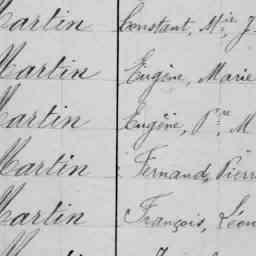 Martin Constant, Mie J
Martin Eugène, Marie
Martin Eugène, Pre M
Martin Fernand, Pierr
Martin François, Léon